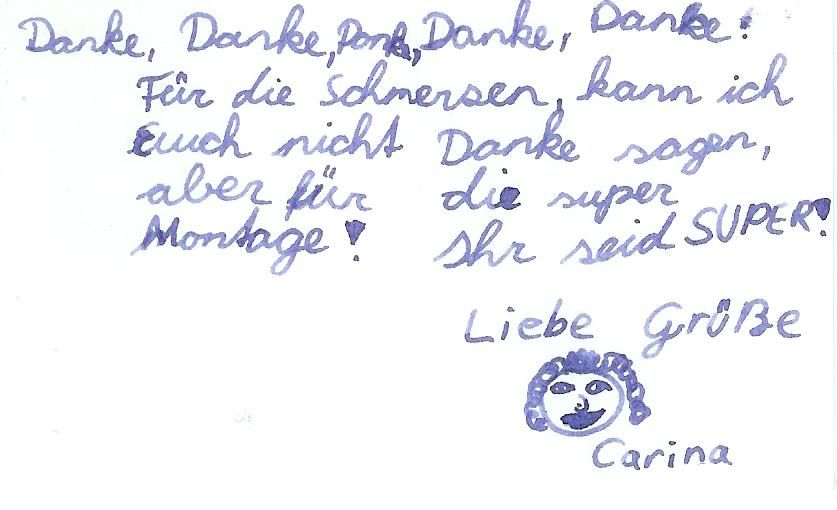 Danke, Danke, Danke, Danke, Danke!
Für die Schmersen, kann ich
Euch nicht Danke sagen,
aber für die super
Montage! Ihr seid SUPER!
Liebe Grüße
Carina